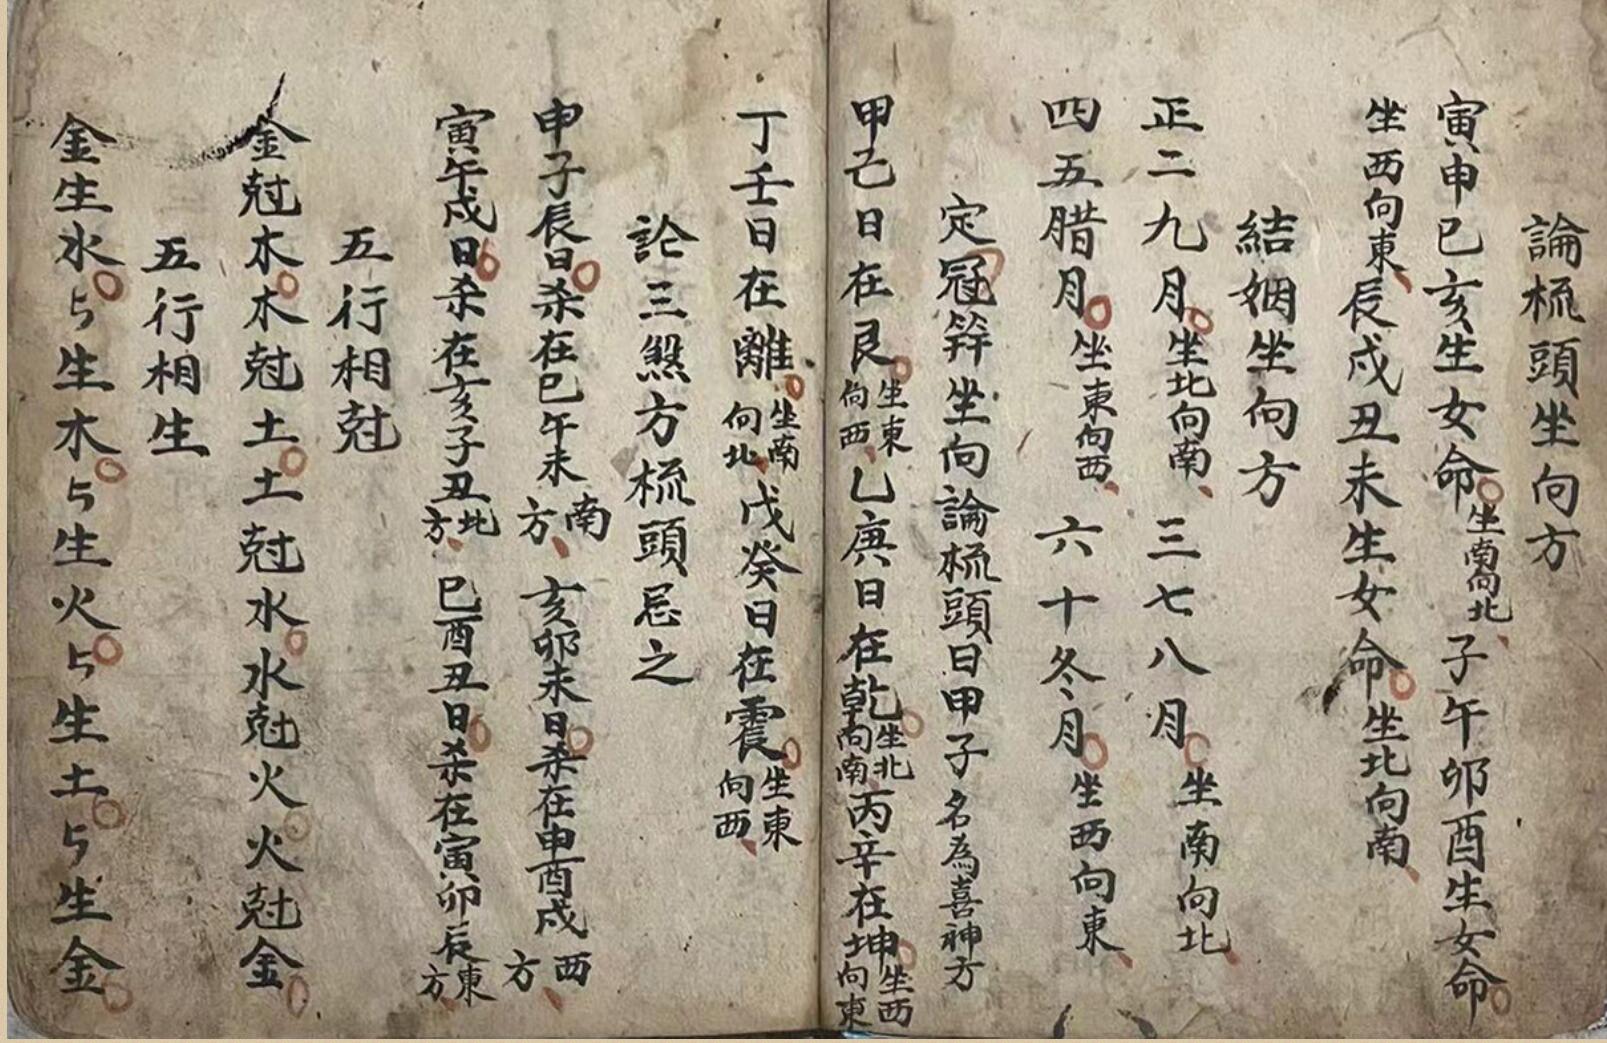 論梳頭坐向方
寅申巳亥生女命坐南向北子午卯酉生女命
坐西向東辰戌丑未生女命坐北向南
結姻坐向方
正二九月坐北向南三七八月坐南向北
四五腊月坐東向西六十冬月坐西向東
定冠笄坐向論梳頭日甲子名為喜神方
甲己日在艮坐東向西乙庚日在乾坐北向南丙辛在坤坐西向東
丁壬日在離坐南向北戊癸日在震坐東向西
論三煞方梳頭忌之
申子辰日杀在巳午未南方亥卯未日杀在申酉戌西方
寅午戌日杀在亥子丑北方巳酉丑日杀在寅卯辰東方
五行相尅
金尅木木尅土土尅水水尅火火尅金
五行相生
金生水ㄣ生木ㄣ生火ㄣ生土ㄣ生金